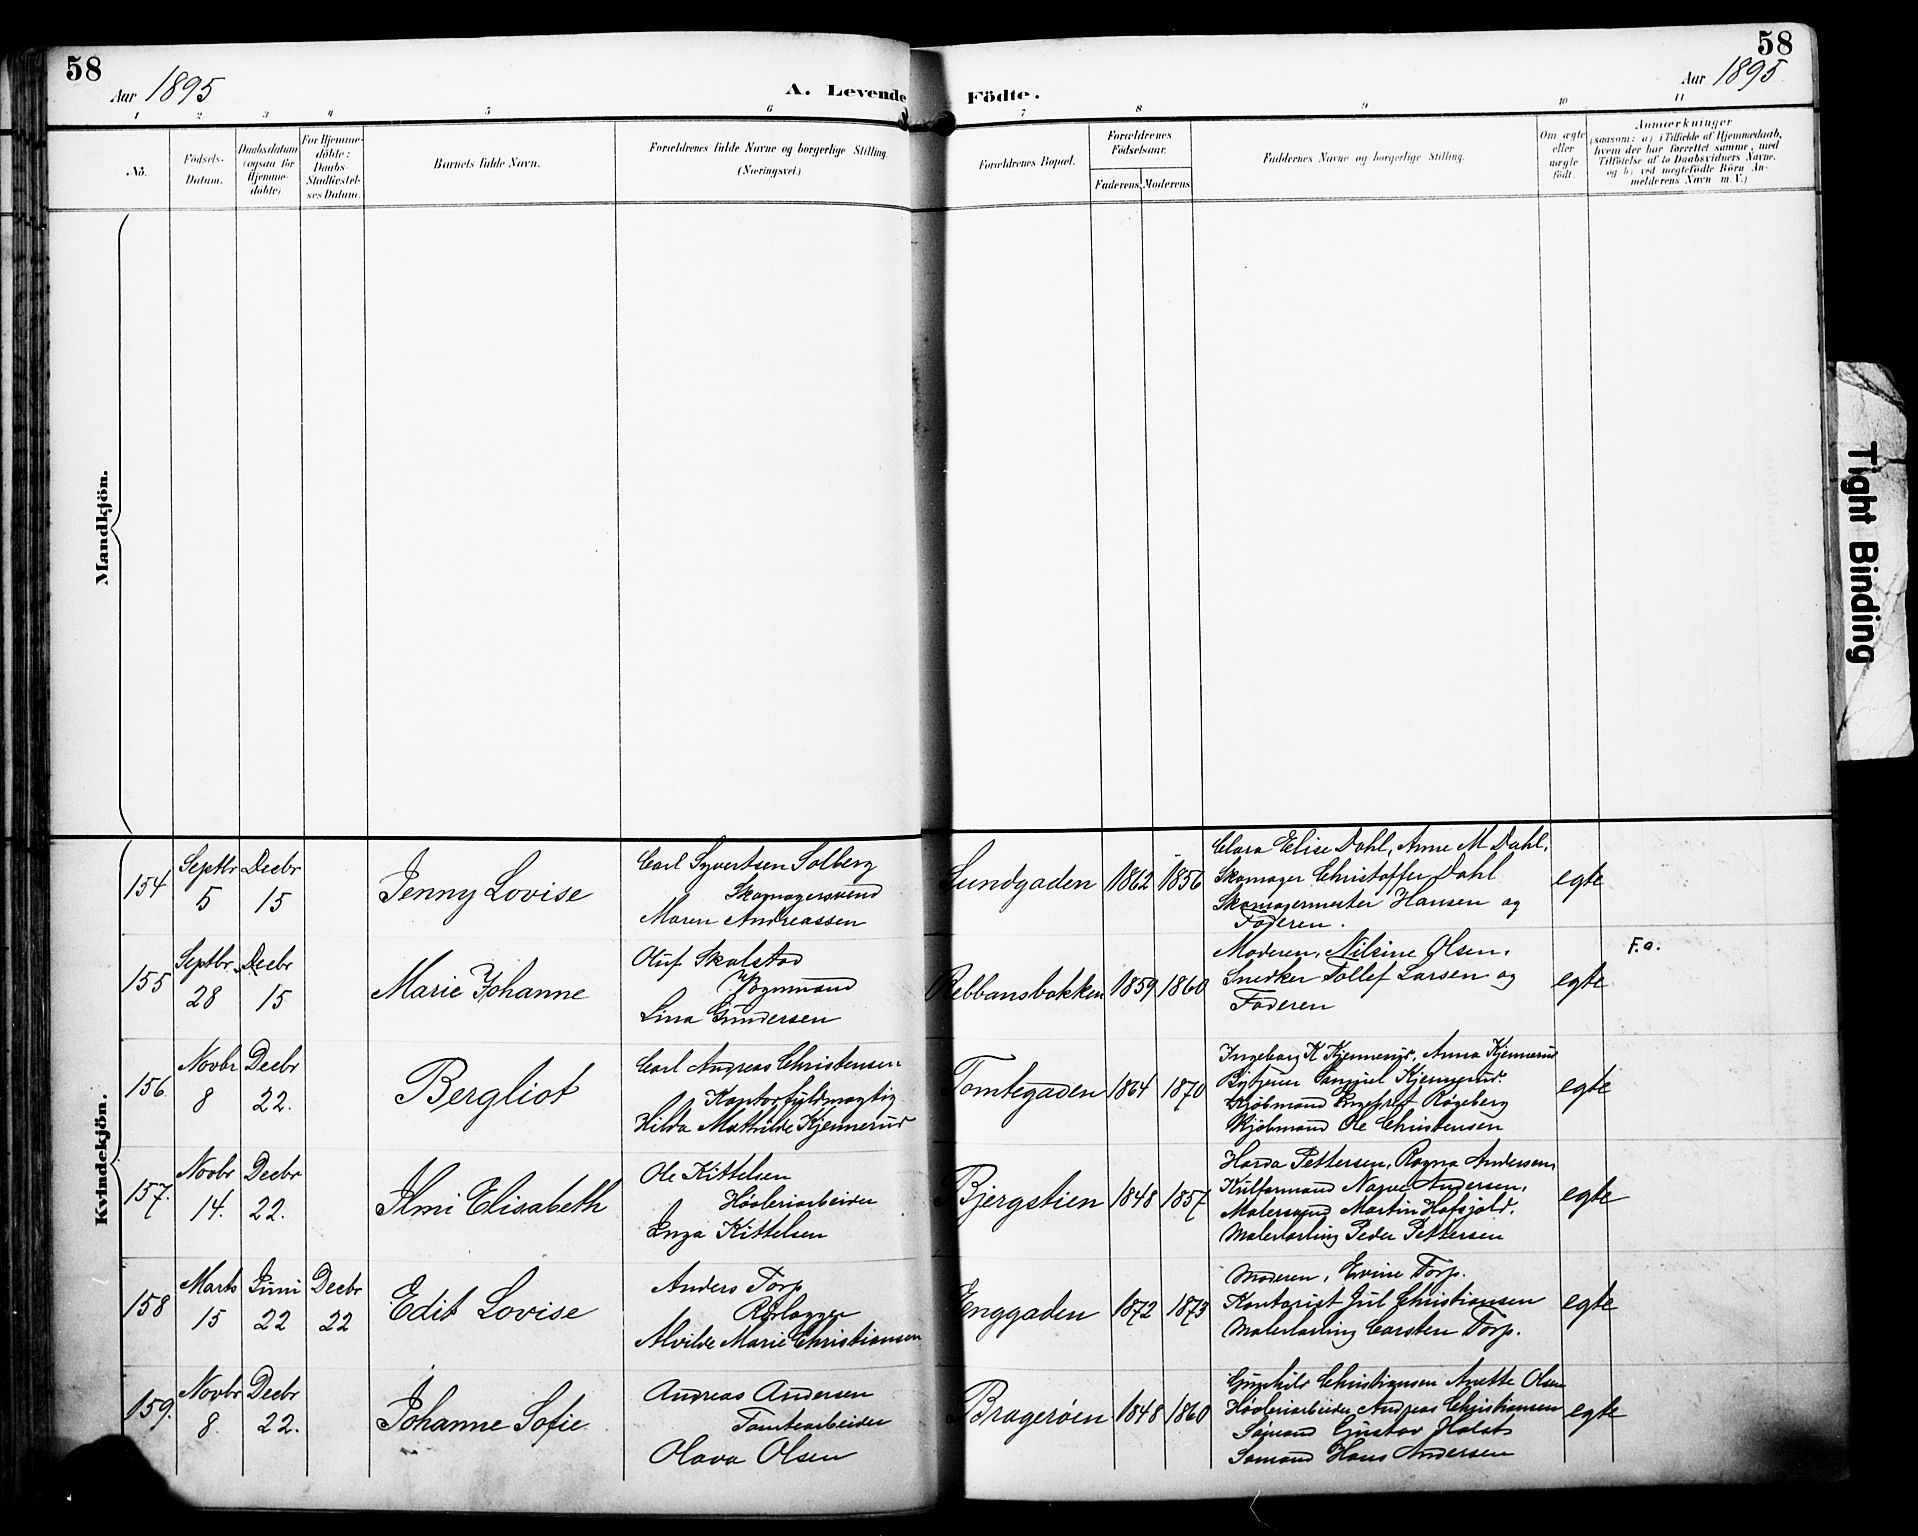 58
Aar 1895
A. Levende
Födte.
58
Aar 1895
1
2
3
4
5
6
7
8
9
10
11
No.
Födsels-
Datum.
Daabsdatum
(ogsaa for
Hjemme-
döbte).
For Hjemme-
döbte:
Daabs-
Stadfæstel-
ses Datum.
Barnets fulde Navn.
Forældrenes fulde Navne og borgerlige Stilling.
(Næringsvei.)
Forældrenes Bopæl.
Forældrenes
Födselsaar.
Faderens
Moderens
Faddernes Navne og borgerlige Stilling.
Om ægte
eller
uægte
födt.
Anmærkninger
(saasom: a) i Tilfælde af Hjemmedaab,
hvem der har forrettet samme, med
Tilföielse af to Daabsvidners Navne.
og b) ved uægtefödte Börn An-
melderens Navn m.V.)
Mandkjön.
Kvindekjön.
154
Septbr
5
Decbr
15
Jenny Lovise
Carl Syvertsen Solberg
Skomagersvend
Maren Andreassen
Lundgaden
1862
1856
Clara Elise Dahl, Anne M Dahl,
Skomager Christoffer Dahl
Skomagermester Hansen og
Faderen.
egte
155
Septbr
28
Decbr
15
Marie Johanne
Oluf Skalstad
Vognmand
Lina Gundersen
Rebbansbakken
1859
1860
Moderen, Nilsine Olsen,
Snedker Tollef Larsen og
Faderen
egte
F.a.
156
Novbr
8
Decbr
22.
Bergliot
Carl Andreas Christensen
Kontorfuldmægtig
Hilda Mathilde Kjennerud
Tomtegaden
1864
1870
Ingeborg K Kjennerud, Anna Kjennerud
Kjennerud.
Kjøbmand Røgeberg
Kjøbmand Ole Christensen
egte
157.
Novbr
14.
Decbr
22.
Ilmi Elisabeth
Ole Kittelsen
Høvleriarbeider
Inga Kittelsen
Bjergstien
1848
1857
Harda Pettersen, Ragna Andersen,
Andersen,
Malersvend Martin Hofsjold.
Malerlærling Peder Pettersen
egte
158
Marts
15
Juni
22
Decbr
22
Edit Lovise
Anders Torp
Rørlægger
Alvilde Marie Christiansen
Enggaden
1872
1873
Moderen, Evine Torp.
Kontorist Jul Christiansen
Malerlærling Carsten Torp.
egte
159.
Novbr
8.
Decbr
22.
Johanne Sofie
Andreas Andersen
Tomtearbeider
Olava Olsen
Bragerøen
1848
1860
Gunhild Christiansen Anette Olsen
Høvleriarbeider Andreas Christiansen
Sømand Gustav Holst
Sømand Hans Andersen
egte
Tight Binding